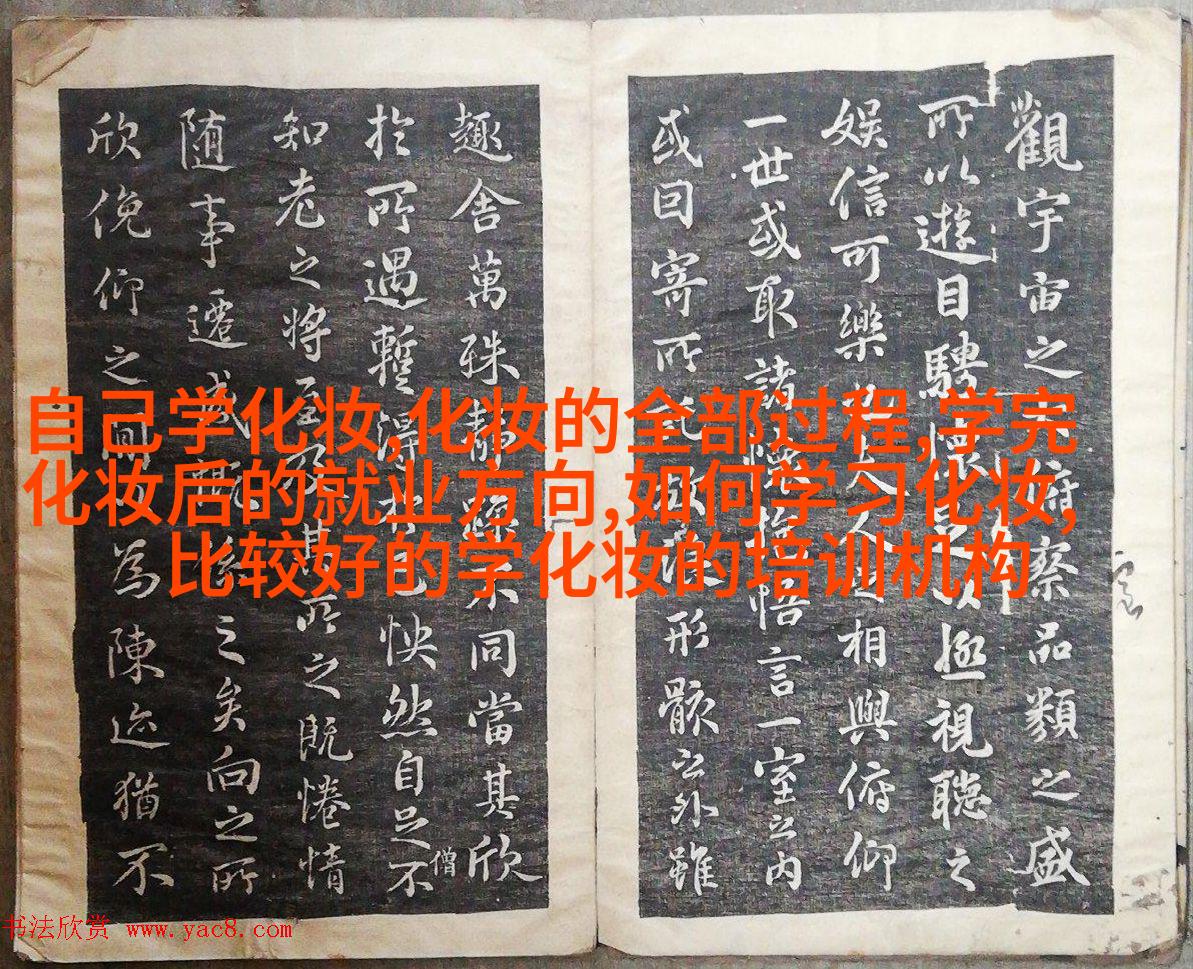 觀宇宙之俯察品類之盛
所以遊目騁懷足以極視聽之
娛信可樂也夫人之相與俯仰
一世或取諸懷抱悟言一室之內
或因寄所託放浪形骸之外雖
趣舍萬殊靜躁不同當其欣
僧
於所遇暫得於己怏然自足不
知老之將至及其所之既惓情
隨事遷感慨係之矣向之所
欣俛仰之間以為陳迹猶不
自己学化妆,化妆的全部过程,学完
化妆后的就业方向,如何学习化妆,
比较好的学化妆的培训机构
书法欣赏 www.yac8.com